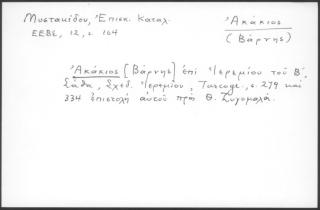 Μυστακίδου, Ἐπισκ. Καταλ.
ΕΕΒΣ, 12, σ. 164
Ἀκάκιος
(Βάρνης)
Ἀκάκιος [Βάρνης] ἐπὶ Ἱερεμίου τοῦ Β΄.
Σάθα, Σχεδ. Ἱερεμίου, σ. 279 καὶ
334 ἐπιστολὴ αὐτοῦ πρὸς Θ. Ζυγομαλᾶ.